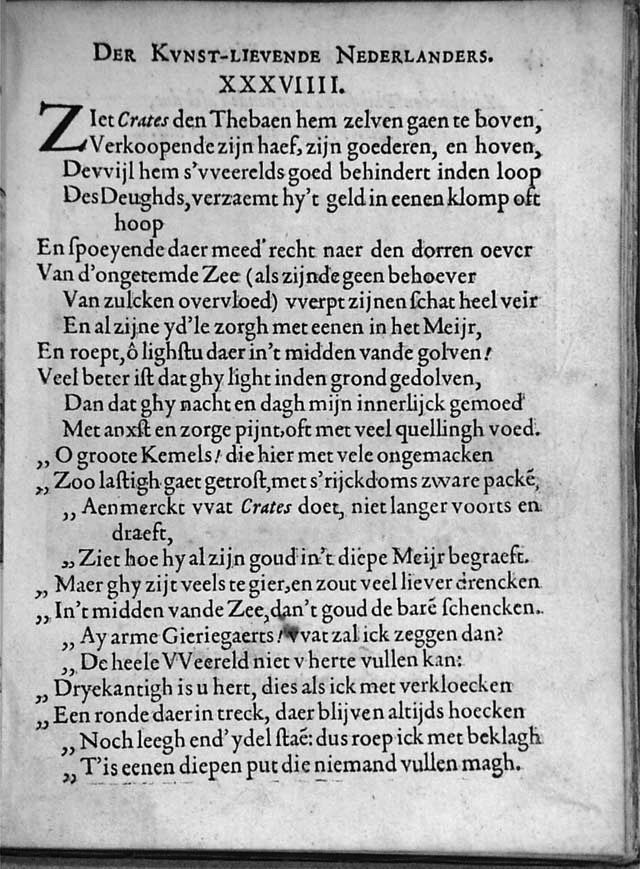 DER KVNST-LIEVENDE NEDERLANDERS.
XXXVIIII.
ZIet Crates den Thebaen hem zelven gaen te boven,
Verkoopende zijn haef, zijn goederen, en hoven,
Devvijl hem s'vveerelds goed behindert inden loop
Des Deughds, verzaemt hy't geld in eenen klomp oft
hoop
En ſpoeyende daer meed' recht naer den dorren oever
Van d'ongetemde Zee (als zijnde geen behoever
Van zulcken overvloed) vverpt zijnen ſchat heel veir
En al zijne yd'le zorgh met eenen in het Meijr,
En roept, ô lighſtu daer in't midden vande golven!
Veel beter iſt dat ghy light inden grond gedolven,
Dan dat ghy nacht en dagh mijn innerlijck gemoed
Met anxſt en zorge pijnt, oft met veel quellingh voed.
,, O groote Kemels! die hier met vele ongemacken
,, Zoo laſtigh gaet getroſt, met s'rijckdoms zware packẽ,
,, Aenmerckt vvat Crates doet, niet langer voorts en
draeft,
,, Ziet hoe hy al zijn goud in't diepe Meijr begraeft.
,, Maer ghy zijt veels te gier, en zout veel liever drencken
,, In't midden vande Zee, dan't goud de barẽ ſchencken.
,, Ay arme Gieriegaerts! vvat zal ick zeggen dan?
,, De heele VVeereld niet v herte vullen kan:
,, Dryekantigh is u hert, dies als ick met verkloecken
,, Een ronde daer in treck, daer blijven altijds hoecken
,, Noch leegh end' ydel ſtaẽ: dus roep ick met beklagh
,, T'is eenen diepen put die niemand vullen magh.